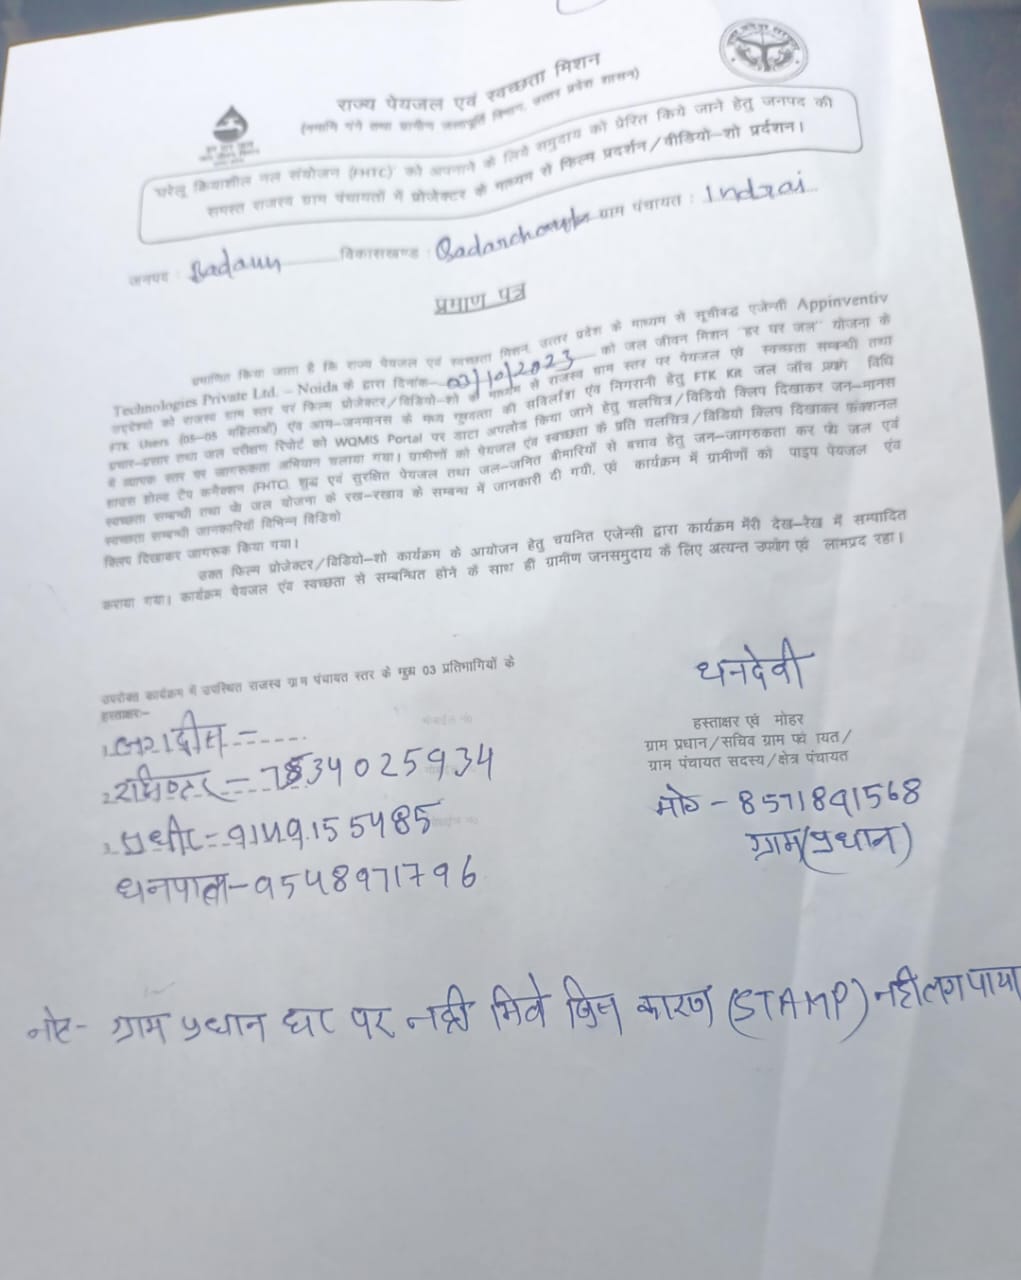 राज्य पेयजल एवं स्वच्छता मिशन
(नमामि गंगे तथा ग्रामीण जलापूर्ति विभाग, उत्तर प्रदेश शासन)
घरेलू क्रियाशील नल संयोजन (FHTC) को अपनाने के लिये समुदाय को प्रेरित किये जाने हेतु जनपद की
समस्त राजस्व ग्राम पंचायतों में प्रोजेक्टर के माध्यम से फिल्म प्रदर्शन/वीडियो-शो प्रर्दशन।
जनपद : Badaun विकासखण्ड : Qadarchowk ग्राम पंचायत : Indrai
प्रमाण पत्र
प्रमाणित किया जाता है कि राज्य पेयजल एवं स्वच्छता मिशन, उत्तर प्रदेश के माध्यम से सूचीबद्ध एजेन्सी Appinventiv
Technologies Private Ltd. – Noida के द्वारा दिनांक- 03/10/2023 को जल जीवन मिशन "हर घर जल" योजना के
उद्देश्यो को राजस्व ग्राम स्तर पर फिल्म प्रोजेक्टर/विडियो-शो के माध्यम से राजस्व ग्राम स्तर पर पेयजल एवं स्वच्छता सम्बन्धी तथा
FTK Users (05-05 महिलाओं) एंव आम-जनमानस के मध्य गुणवत्ता की सर्विलांश एंव निगरानी हेतु FTK Kit जल जाँच विधि
प्रचार-प्रसार तथा जल परीक्षण रिपोर्ट को WQMIS Portal पर डाटा अपलोड किया जाने हेतु चलचित्र/विडियो क्लिप दिखाकर जन-मानस
में व्यापक स्तर पर जागरूकता अभियान चलाया गया। ग्रामीणों को पेयजल एंव स्वच्छता के प्रति चलचित्र/विडियो क्लिप दिखाकर फंक्शनल
हाउस होल्ड टैप कनैक्शन (FHTC), शुद्ध एवं सुरक्षित पेयजल तथा जल-जनित बीमारियों से बचाव हेतु जन-जागरूकता कर जल एवं
स्वच्छता सम्बन्धी तथा जल योजना के रख-रखाव के सम्बन्ध में जानकारी दी गयी, एवं कार्यक्रम में ग्रामीणों को पाइप पेयजल एंव
स्वच्छता सम्बन्धी जानकारियाँ विभिन्न विडियो
क्लिप दिखाकर जागरूक किया गया।
उक्त फिल्म प्रोजेक्टर/विडियो-शो कार्यक्रम के आयोजन हेतु चयनित एजेन्सी द्वारा कार्यक्रम मेंरी देख-रेख में सम्पादित
कराया गया। कार्यक्रम पेयजल एंव स्वच्छता से सम्बन्धित होने के साथ ही ग्रामीण जनसमुदाय के लिए अत्यन्त उपयोग एवं लाभप्रद रहा।
उपरोक्त कार्यक्रम में उपस्थित राजस्व ग्राम पंचायत स्तर के मुख्य 03 प्रतिभागियों के
हस्ताक्षर:-
धनदेवी
हस्ताक्षर एवं मोहर
ग्राम प्रधान/सचिव ग्राम पंचायत/
ग्राम पंचायत सदस्य/क्षेत्र पंचायत
मो० - 8571891568
ग्राम(प्रधान)
1. जगदीस -
2. - 7534025934
3. - 9149155485
धनपाल - 9548971796
नोट - ग्राम प्रधान घर पर नही मिले जिस कारण (STAMP) नही लग पाया